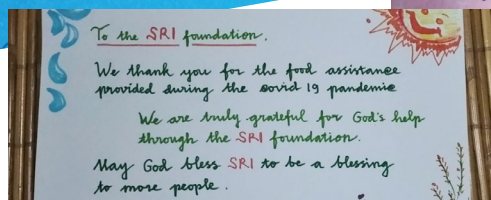 To the SRI foundation.
We thank you for the food assistance
provided during the covid 19 pandemic
We are truly grateful for God's help
through the SRI foundation.
May God bless SRI to be a blessing
to more people.